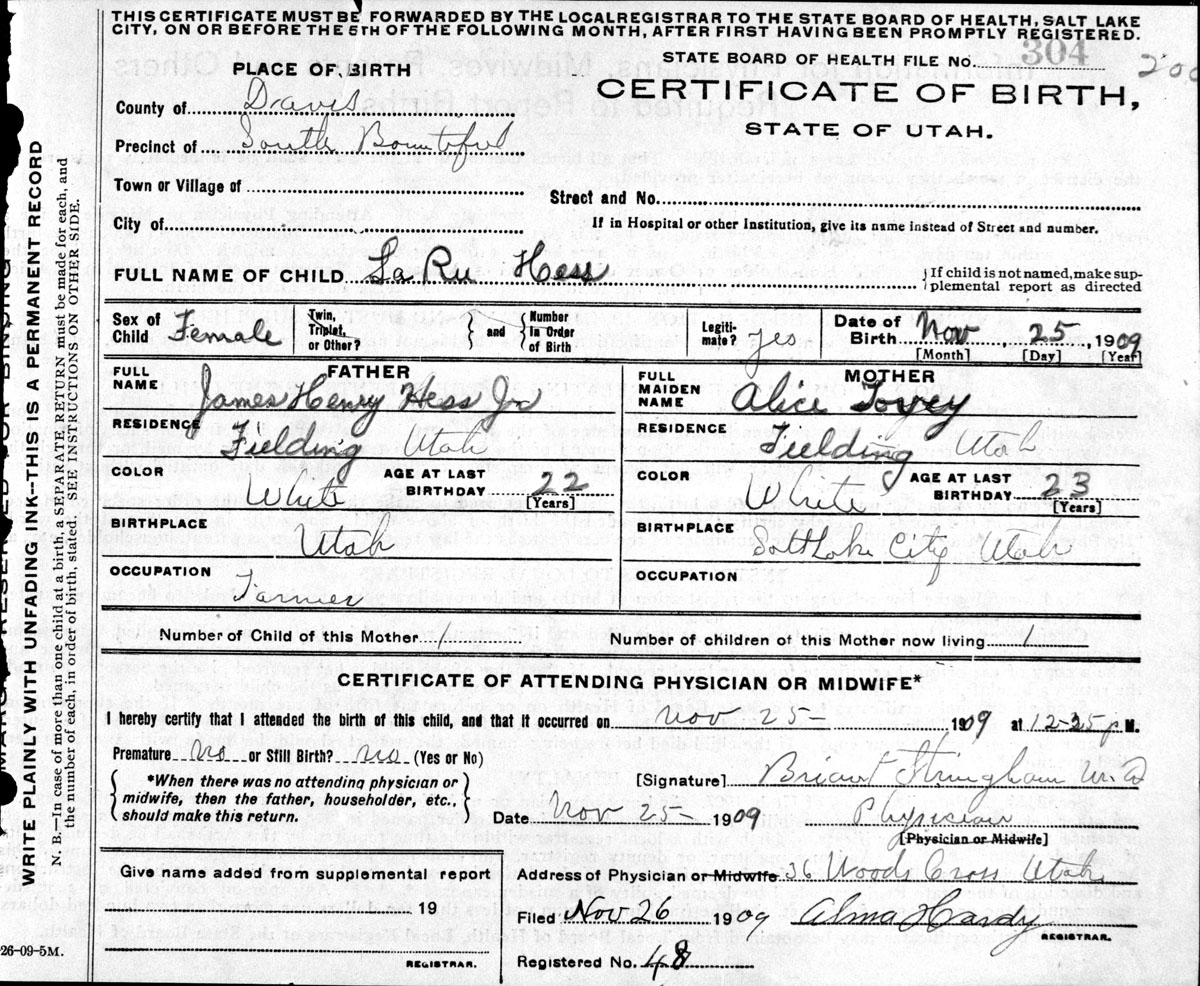 THIS CERTIFICATE MUST BE FORWARDED BY THE LOCAL REGISTRAR TO THE STATE BOARD OF HEALTH, SALT LAKE
CITY, ON OR BEFORE THE 5TH OF THE FOLLOWING MONTH, AFTER FIRST HAVING BEEN PROMPTLY REGISTERED.
STATE BOARD OF HEALTH FILE No. 304
200
PLACE OF BIRTH
CERTIFICATE OF BIRTH,
STATE OF UTAH.
County of Davis
Precinct of South Bountiful
Town or Village of
Street and No.
City of
If in Hospital or other Institution, give its name instead of Street and number.
FULL NAME OF CHILD La Ru Hess } If child is not named, make sup-
plemental report as directed
Sex of Child Female
Twin, Triplet, or Other? } and { Number In Order of Birth
Legiti-mate? Yes
Date of Birth Nov 25, 1909
[Month] [Day] [Year]
FATHER
FULL NAME James Henry Hess Jr
RESIDENCE Fielding Utah
COLOR White AGE AT LAST BIRTHDAY 22 [Years]
BIRTHPLACE Utah
OCCUPATION Farmer
MOTHER
FULL MAIDEN NAME Alice Tovey
RESIDENCE Fielding Utah
COLOR White AGE AT LAST BIRTHDAY 23 [Years]
BIRTHPLACE Salt Lake City Utah
OCCUPATION
Number of Child of this Mother 1 Number of children of this Mother now living 1
CERTIFICATE OF ATTENDING PHYSICIAN OR MIDWIFE*
I hereby certify that I attended the birth of this child, and that it occurred on Nov 25- 1909 at 12-35 p M.
Premature no or Still Birth? no (Yes or No)
*When there was no attending physician or
midwife, then the father, householder, etc.,
should make this return.
[Signature] Briant Stringham M.D
Date Nov 25- 1909 Physician
[Physician or Midwife]
Give name added from supplemental report
19
REGISTRAR.
Address of Physician or Midwife 36 Woods Cross Utah
Filed Nov 26 1909 Alma Hardy
REGISTRAR.
Registered No. 48
26-09-5M.
MARGIN RESERVED FOR BINDING
WRITE PLAINLY WITH UNFADING INK--THIS IS A PERMANENT RECORD
N. B.—In case of more than one child at a birth, a SEPARATE RETURN must be made for each, and
the number of each, in order of birth, stated. SEE INSTRUCTIONS ON OTHER SIDE.